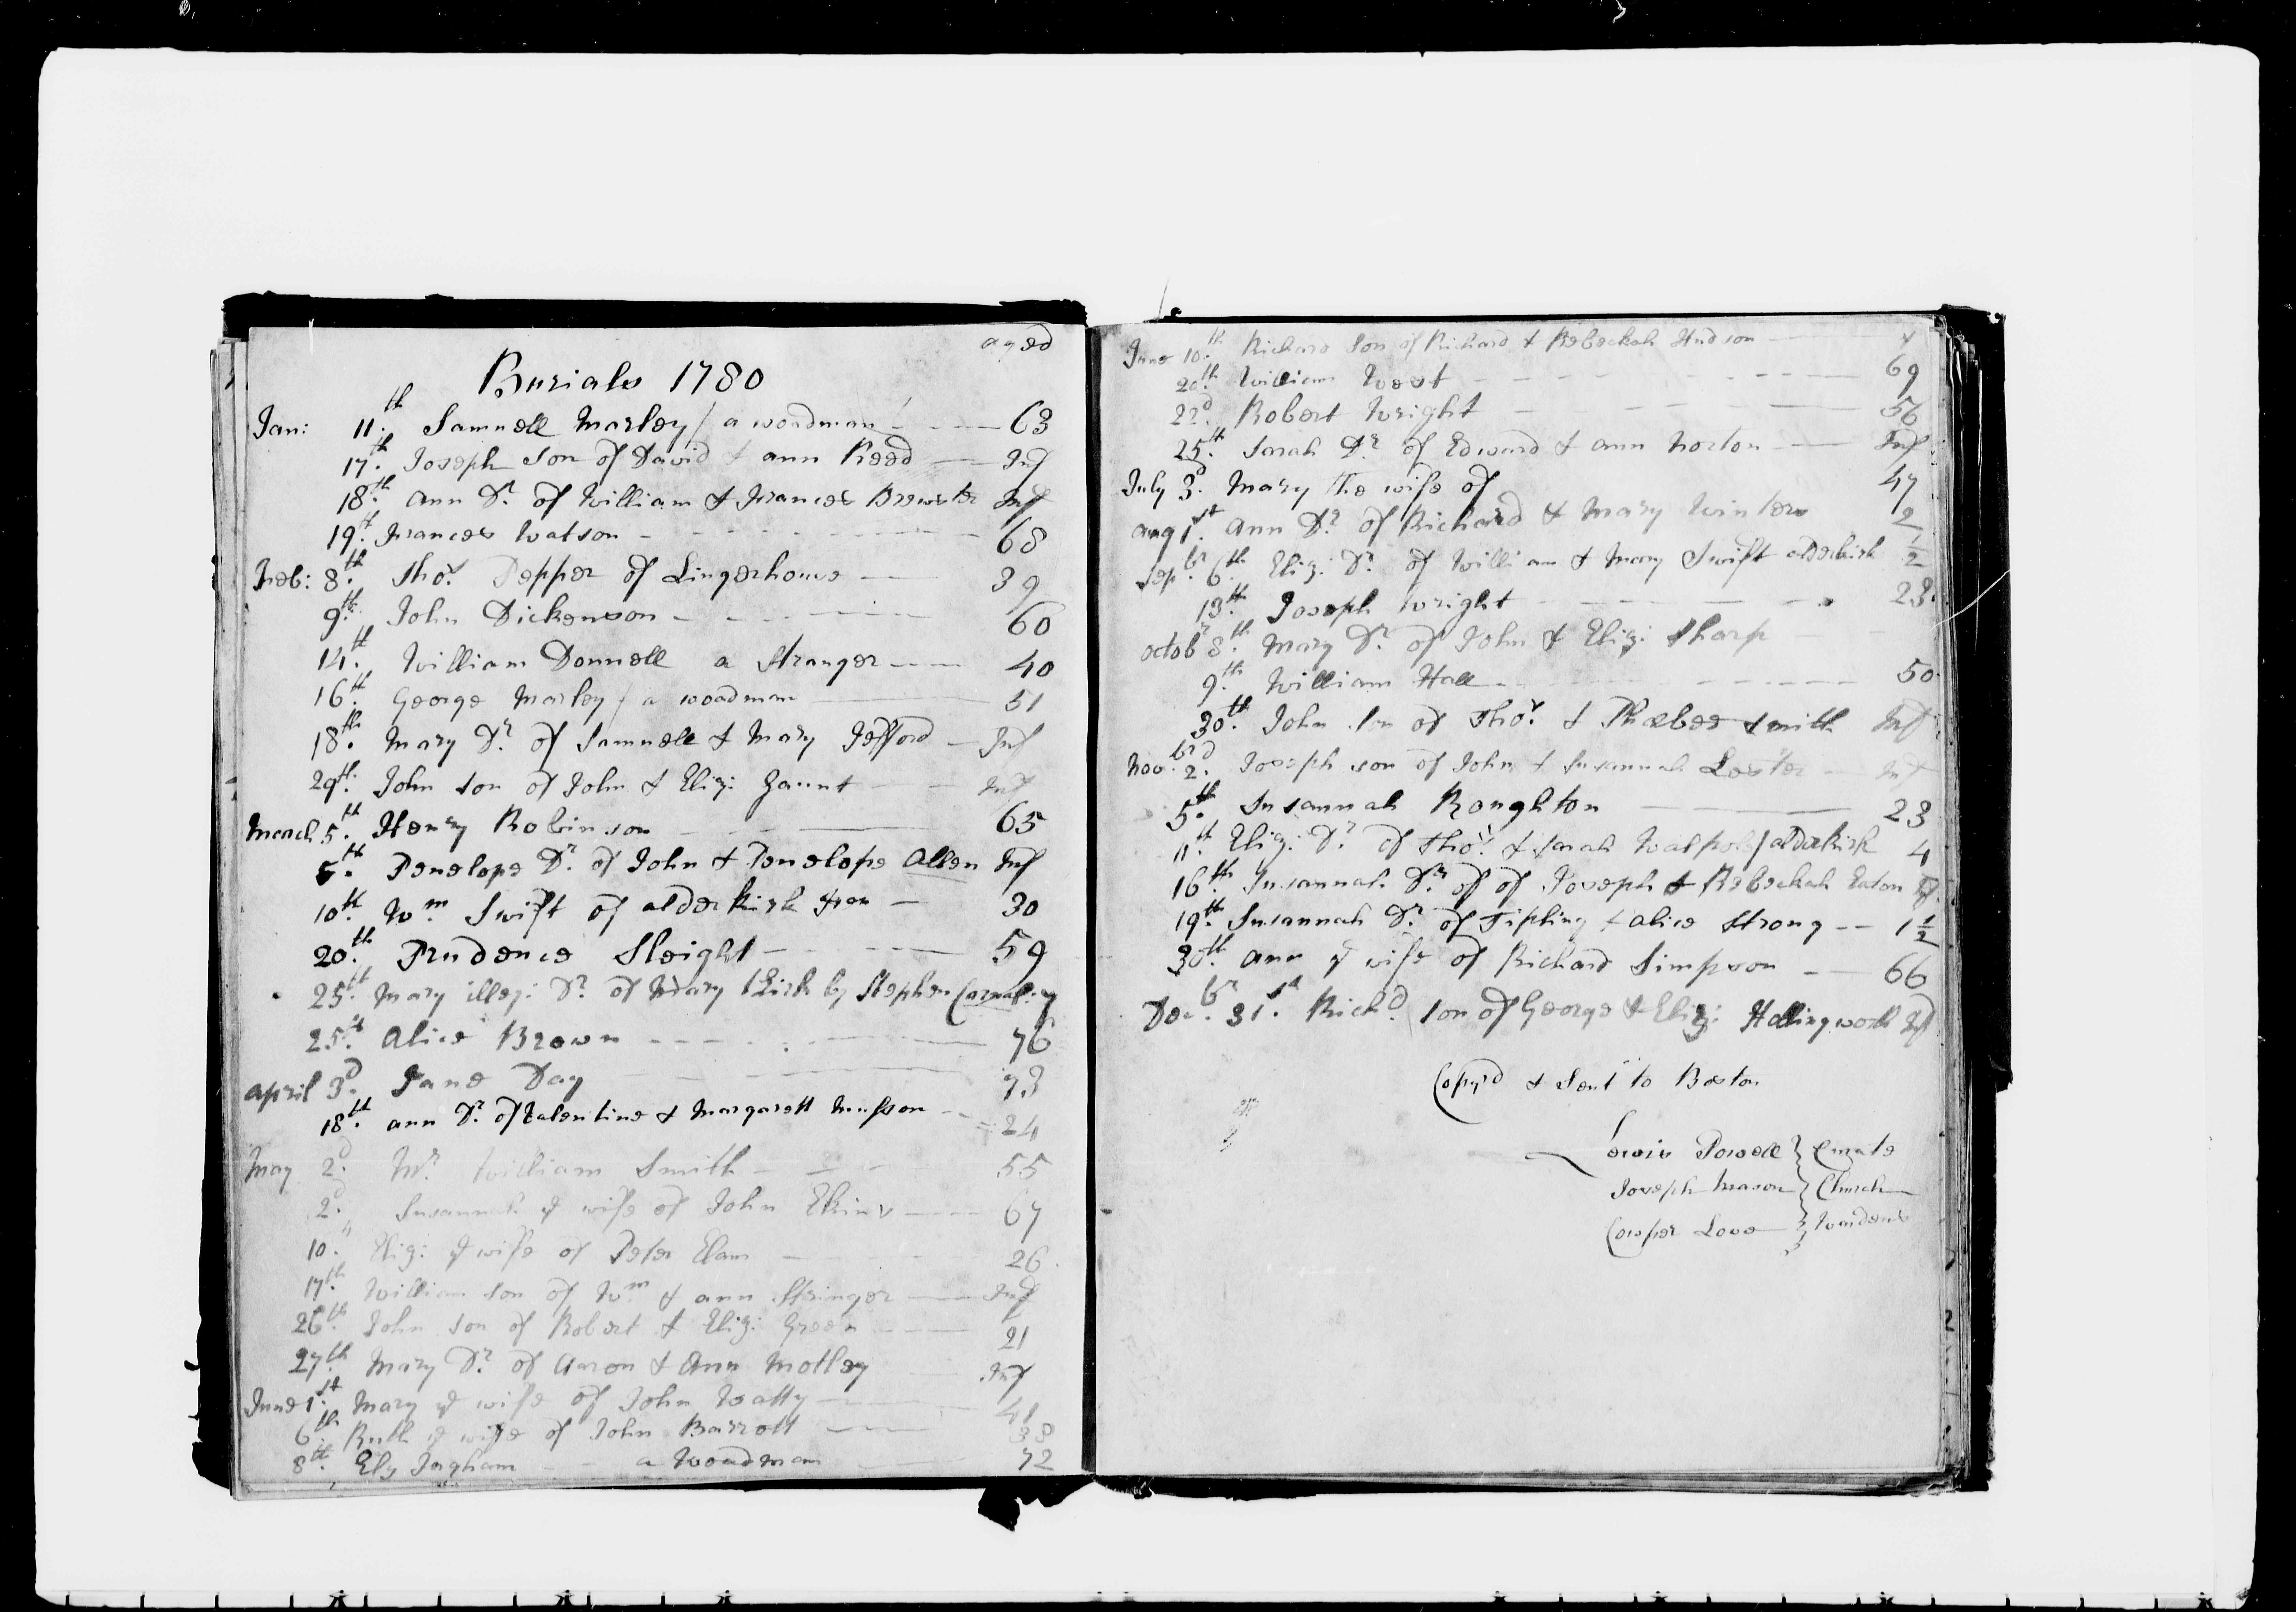 aged
Burials 1780
Jan: 11th Samuell Marley / a woadman 63
17th Joseph Son of David & ann Reed Inf
18th ann Dr of William & Frances Brewster Inf
19th Frances Watson 68
Feb: 8th Thos Pepper of Lingerhouse 39
9th John Dickenson 60
14th William Donnell a Stranger 40
16th George Marley / a woadman 51
18th Mary Dr of Samuell & Mary Jefford Inf
29th John Son of John & Eliz: Gaunt Inf
March 5th Henry Robinson 65
5th Penelope Dr of John & Penelope Allen Inf
10th Wm Swift of alderkirk 30
20th Prudence Sleight 59
25th Mary illeg: Dr of Mary Kirk by Stephen
25th Alice Brown 76
April 3d Jane Day 73
18th ann Dr of Valentine & Margarett Musson 24
May 2d Mr William Smith 55
2d Susannah ye wife of John Ekins 67
10th Eliz: ye wife of Peter Elam 26
17th William Son of Wm & ann Stringer Inf
26th John Son of Robert & Eliz: Green 21
27th Mary Dr of Aaron & Ann Motley Inf
June 1st Mary ye wife of John Watty 41
6th Ruth ye wife of John Barrott 38
8th Ely Ingham a Woadman 72
June 10th Richard Son of Richard & Rebeckah Hudson
20th William West 69
22d Robert Wright 56
25th Sarah Dr of Edward & ann Norton Inf
July 3d Mary the wife of 47
aug 1st Ann Dr of Richard & Mary Winters 2
Sepbr 6th Eliz: Dr of William & Mary Swift alderkirk 1/2
13th Joseph Wright 23
Octobr 8th Mary Dr of John & Eliz: Sharp
9th William Hall 50
30th John Son of Thos & Phœbee Smith Inf
Novbr 2d Joseph son of John & Susannah Lester Inf
5th Susannah Roughton 23
11th Eliz: Dr of Thos & Sarah Walpole / alderkirk 4
16th Susannah Dr of of Joseph & Rebeckah Eaton
19th Susannah Dr of Tipling & Alice Strong 1 1/2
30th Ann ye wife of Richard Simpson 66
Decbr 31st Richd Son of George & Eliz: Hallingworth Inf
Copyd & Sent to Boston
Lewis Powell } Curate
Joseph Mason } Church
Cowper Love } Wardens